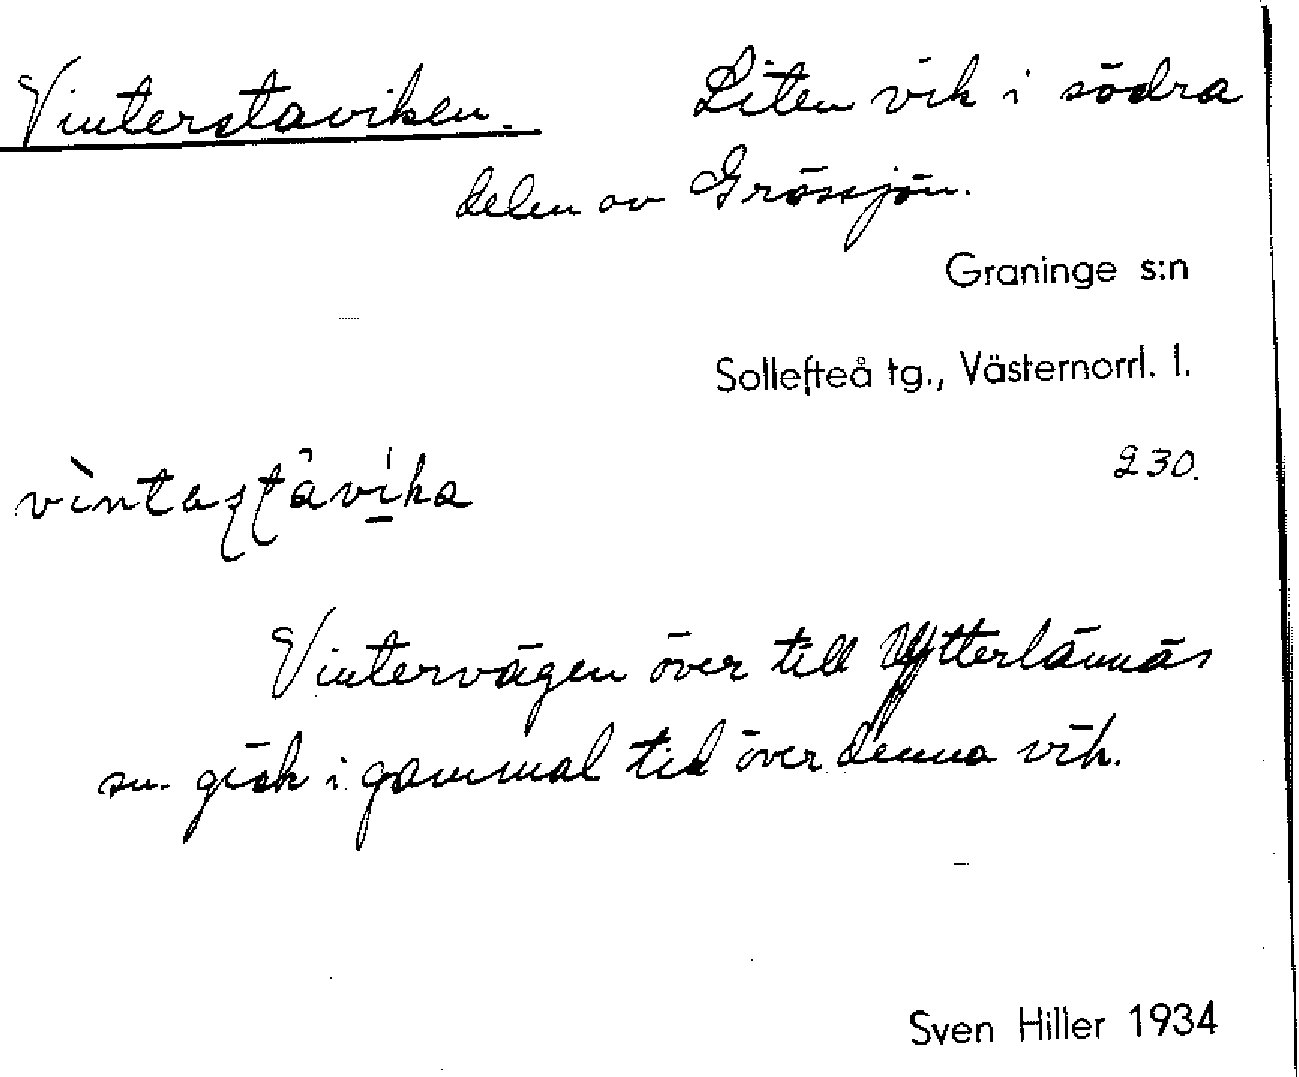 Vinterstaviken. Liten vik i södra
delen av Grössjön.
Graninge s:n
Sollefteå tg., Västernorrl. l.
230.
vintastávika
Vintervägen över till Ytterlännäs
sn. gick i gammal tid över denna vik.
Sven Hiller 1934